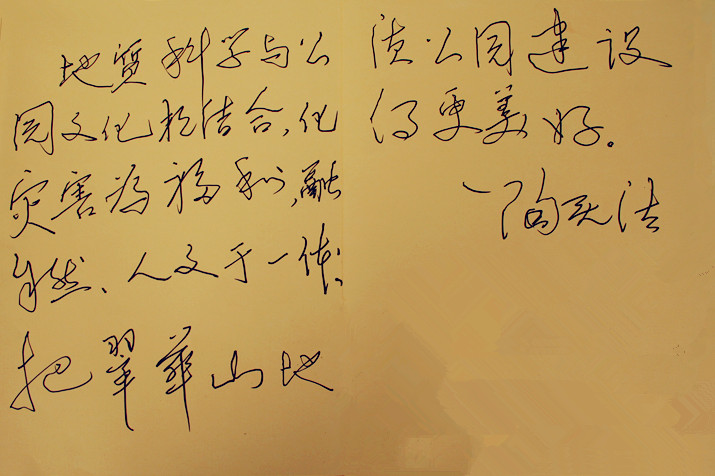 地质科学与公
园文化相结合,化
灾害为福利,融
自然、人文于一体。
把翠华山地
质公园建设
得更美好。
陶天法